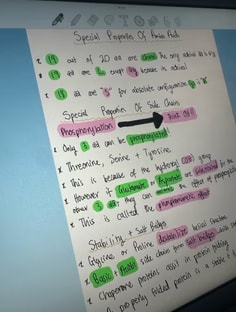 Special Properties Of Amino Acids
19 out of 20 aa are chiral the only achiral aa is gly
19 aa are L, except gly because is achiral
18 aa are "S" for absolute configuration is "R"
Special Properties Of Side Chain
Phosphorylation
Only 3 aa can be phosphorylated!
Threonine, Serine + Tyrosine
This is because of the hydroxyl (OH) group
However if Glutamate or Aspartate are
above 3 aa, they can the effect of phosphorylation
This is called the phosphomimetic effect
Stability + Salt Bridges
Glycine or Proline destabilize helical structure
Basic + Acidic side chain form salt bridges
Chaperone proteins assist in protein folding
A properly folded protein is a stable